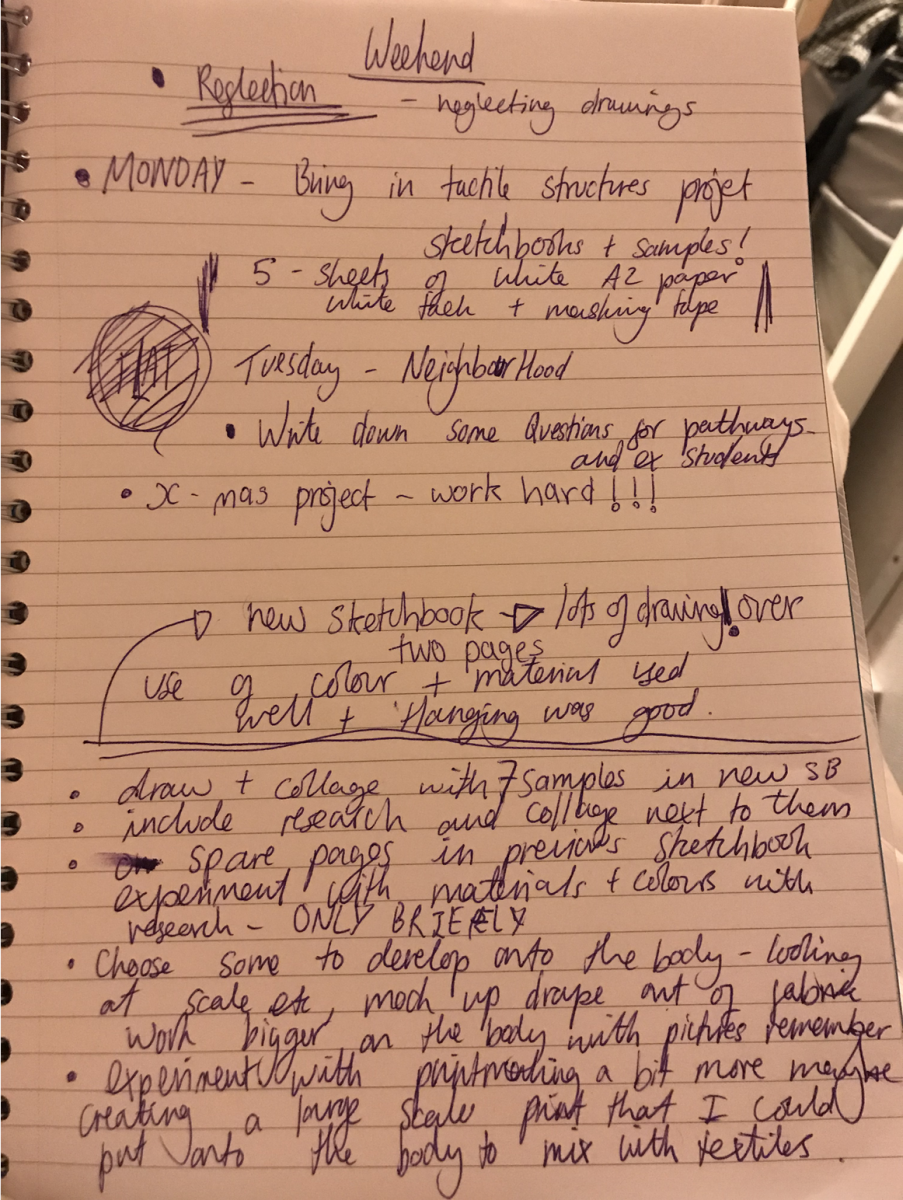 Weekend
• Reflection - neglecting drawings
• MONDAY - Bring in tactile structures projet
sketchbooks + samples!
5 - sheets of white A2 paper
white tack + masking tape
FLAT
Tuesday - NeighbourHood
• Write down some Questions for pathways
and ex students
• X-mas project - work hard!!!
new sketchbook → lots of drawing! over
two pages
use of colour + material used
well + Hanging was good.
• draw + collage with 7 samples in new SB
• include research and collage next to them
• spare pages in previous sketchbook
experiment with materials + colours with
research - ONLY BRIEFLY
• Choose some to develop onto the body - looking
at scale etc, mock up drape out of fabric
work bigger on the body with pictures remember
• experiment with printmaking a bit more maybe
creating a large scale print that I could
put onto the body to mix with textiles.